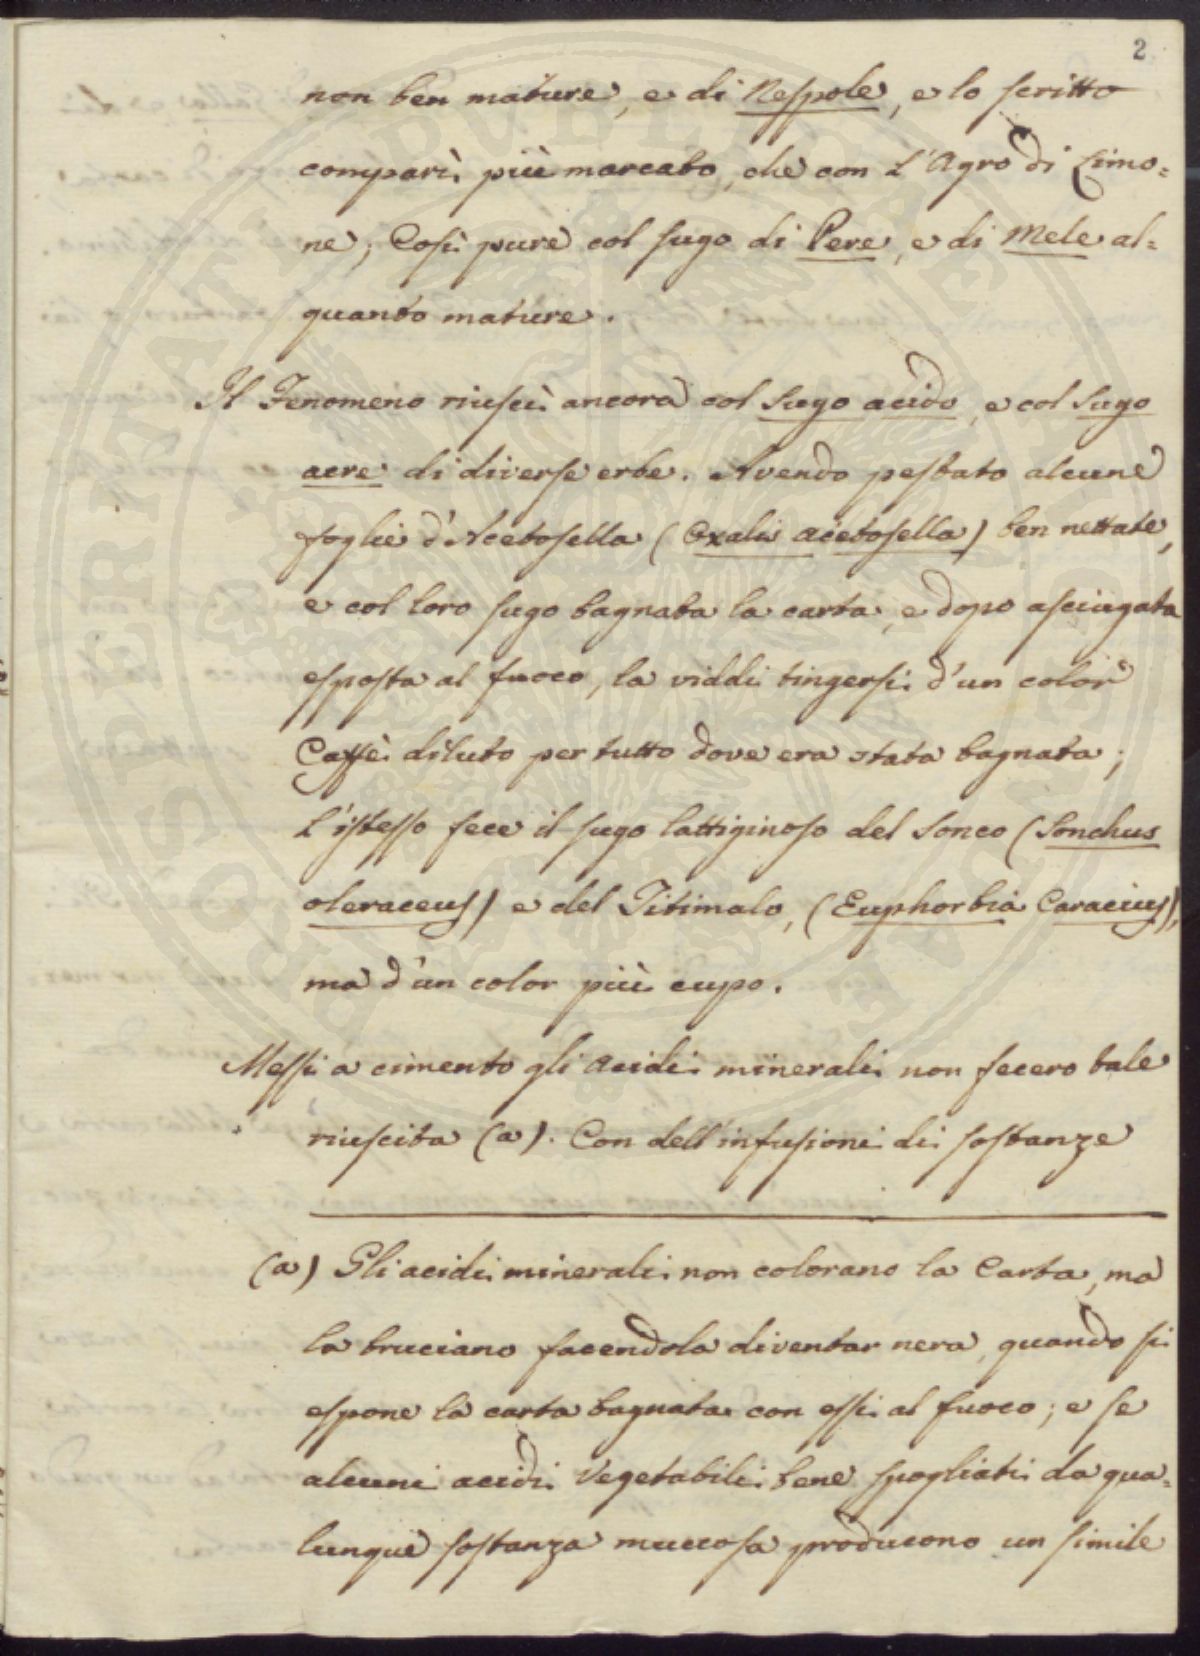 2
non ben mature, e di Nespole, e lo scritto
comparì più marcato, che con l'Agro di Limo=
ne; Così pure col sugo di Pere, e di Mele al=
quanto mature.
Il Fenomeno riuscì ancora col Sugo acido, e col Sugo
acre di diverse erbe. Avendo pestato alcune
foglie d'Acetosella (Oxalis acetosella) ben nettate,
e col loro sugo bagnata la carta, e dopo asciugata
esposta al fuoco, la viddi tingersi d'un color
Caffè diluto per tutto dove era stata bagnata;
l'istesso fece il sugo lattiginoso del Sonco (Sonchus
oleraceus) e del Titimalo, (Euphorbia Caracius),
ma d'un color più cupo.
Messi a cimento gli Acidi minerali non fecero tale
riuscita (a). Con dell'infusioni di sostanze
(a) Gli acidi minerali non colorano la Carta, ma
la bruciano facendola diventar nera, quando si
espone la carta bagnata con essi al fuoco; e se
alcuni acidi Vegetabili bene spogliati da qua=
lunque sostanza muccosa producono un simile
PROSPERITATI PVBLICAE